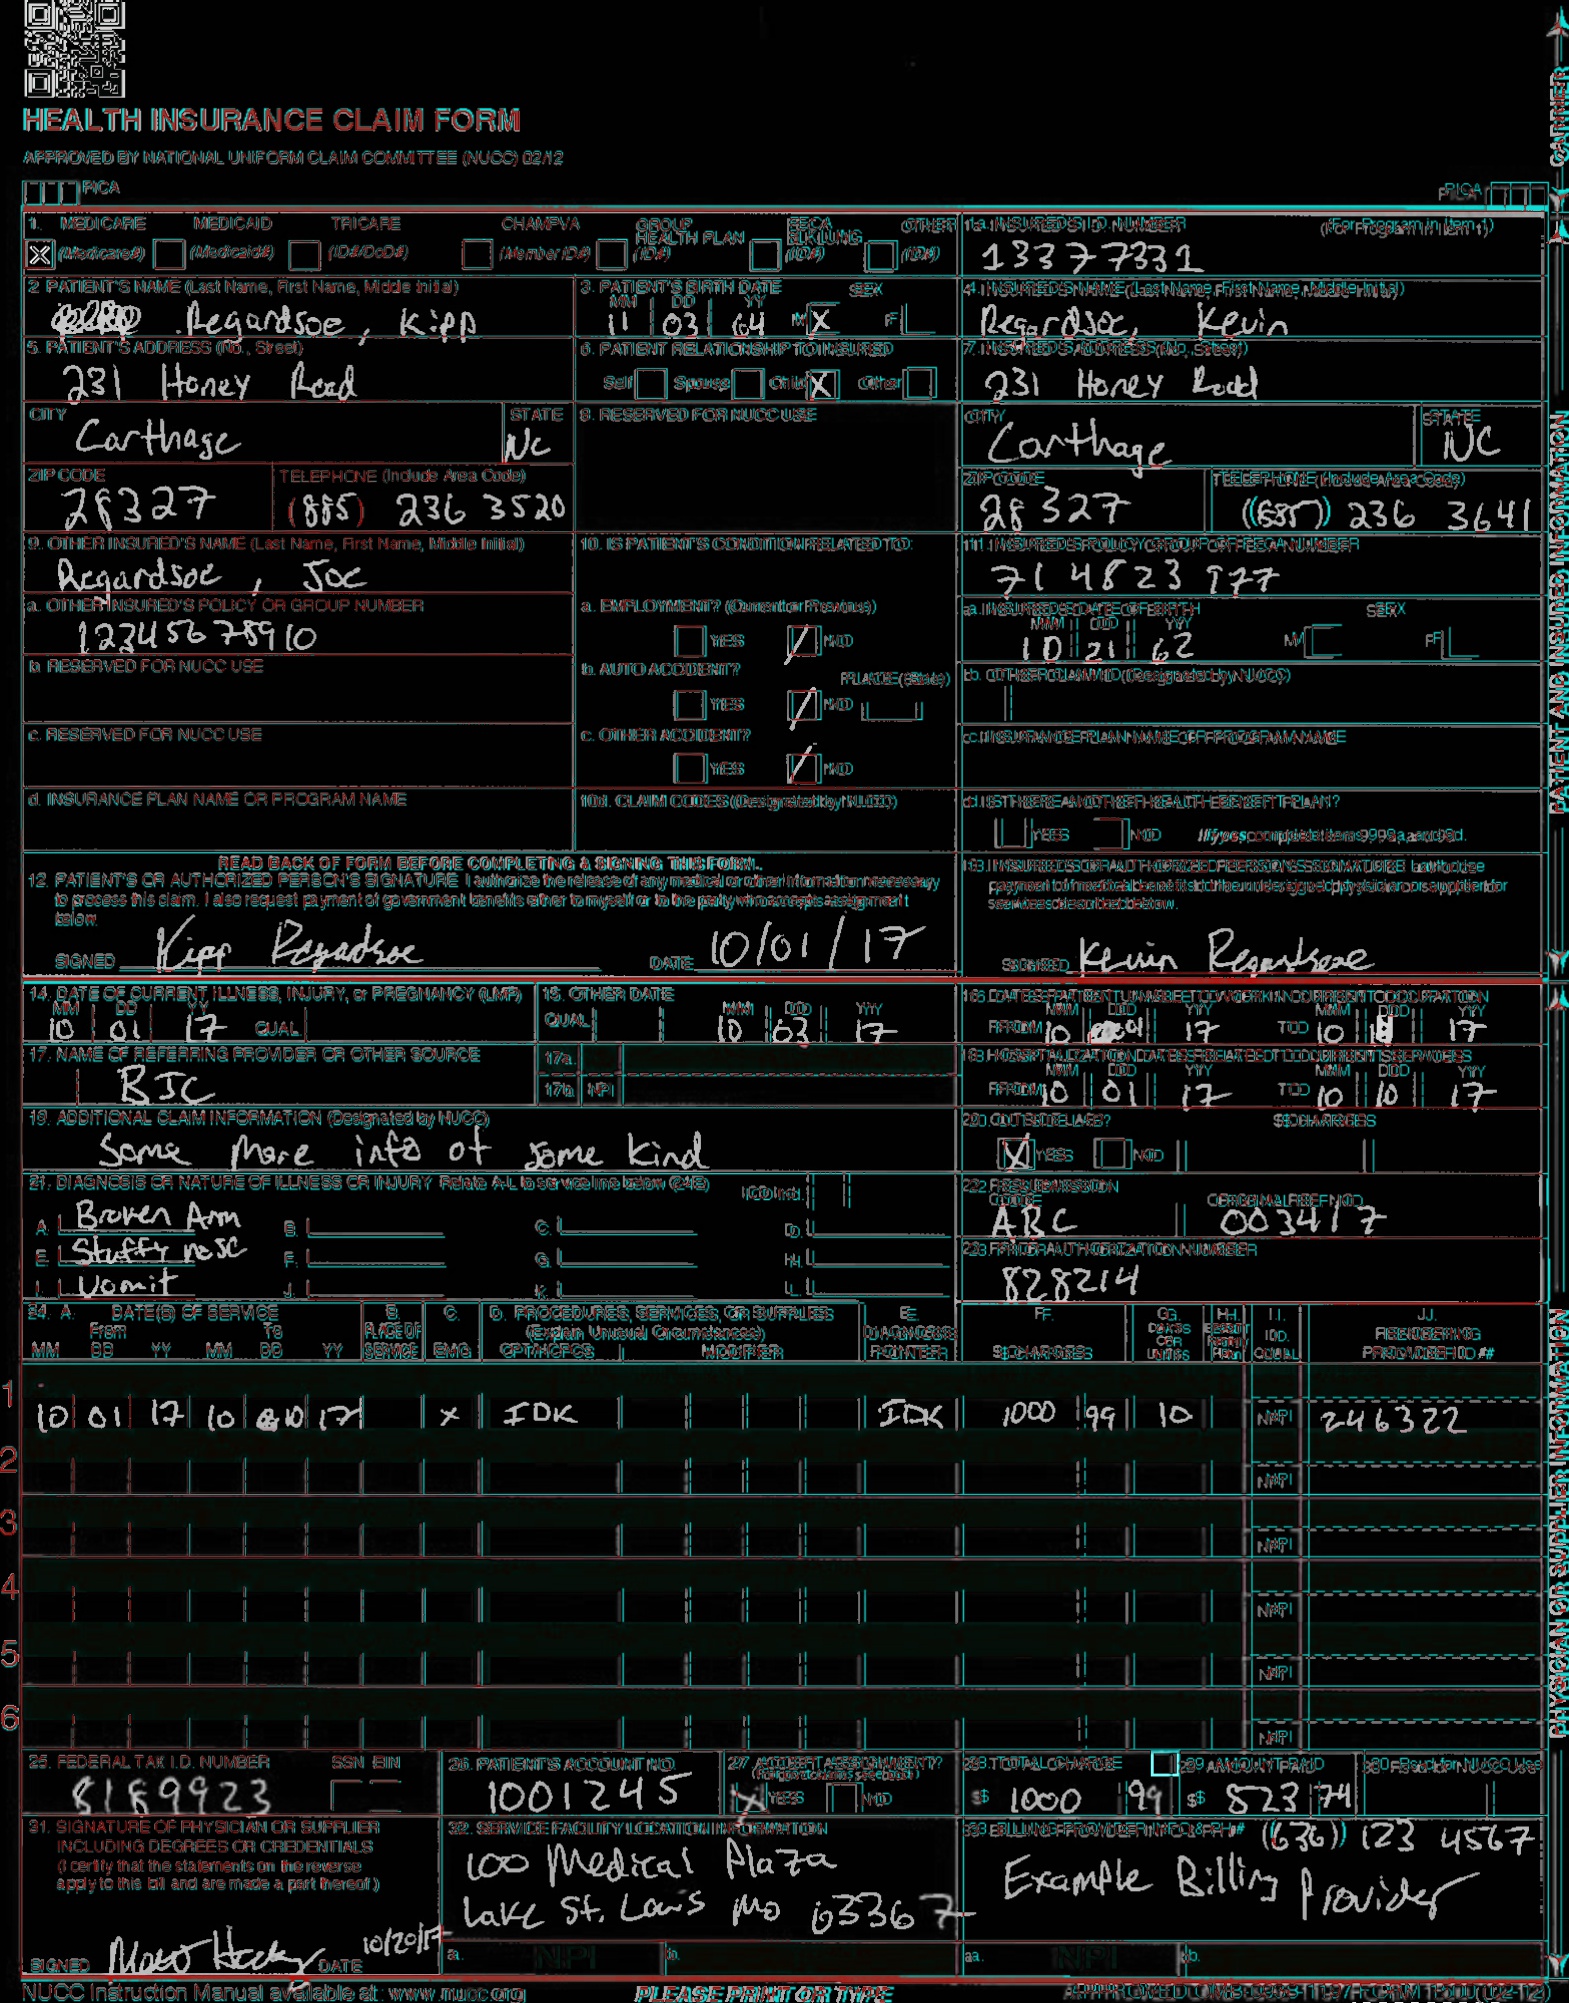 HEALTH INSURANCE CLAIM FORM
APPROVED BY NATIONAL UNIFORM CLAIM COMMITTEE (NUCC) 02/12
PICA
PICA
CARRIER
1. MEDICARE MEDICAID TRICARE CHAMPVA GROUP HEALTH PLAN FECA BLK LUNG OTHER
(Medicare#) (Medicaid#) (ID#/DoD#) (Member ID#) (ID#) (ID#) (ID#)
1a. INSURED'S I.D. NUMBER (For Program in Item 1)
13377331
2. PATIENT'S NAME (Last Name, First Name, Middle Initial)
Regardsoe, Kipp
3. PATIENT'S BIRTH DATE SEX
MM DD YY
11 03 64 M X F
4. INSURED'S NAME (Last Name, First Name, Middle Initial)
Regardsoe, Kevin
5. PATIENT'S ADDRESS (No., Street)
231 Honey Road
6. PATIENT RELATIONSHIP TO INSURED
Self Spouse Child X Other
7. INSURED'S ADDRESS (No., Street)
231 Honey Road
CITY STATE
Carthage NC
8. RESERVED FOR NUCC USE
CITY STATE
Carthage NC
ZIP CODE TELEPHONE (Include Area Code)
28327 (885) 236 3520
ZIP CODE TELEPHONE (Include Area Code)
28327 236 3641
9. OTHER INSURED'S NAME (Last Name, First Name, Middle Initial)
Regardsoe, Joe
10. IS PATIENT'S CONDITION RELATED TO:
11. INSURED'S POLICY GROUP OR FECA NUMBER
71 4823 977
a. OTHER INSURED'S POLICY OR GROUP NUMBER
12345678910
a. EMPLOYMENT? (Current or Previous)
YES NO
a. INSURED'S DATE OF BIRTH SEX
MM DD YY
10 21 62 M F
b. RESERVED FOR NUCC USE
b. AUTO ACCIDENT? PLACE (State)
YES NO
b. OTHER CLAIM ID (Designated by NUCC)
c. RESERVED FOR NUCC USE
c. OTHER ACCIDENT?
YES NO
c. INSURANCE PLAN NAME OR PROGRAM NAME
d. INSURANCE PLAN NAME OR PROGRAM NAME
10d. CLAIM CODES (Designated by NUCC)
d. IS THERE ANOTHER HEALTH BENEFIT PLAN?
YES NO If yes, complete items 9, 9a, and 9d.
READ BACK OF FORM BEFORE COMPLETING & SIGNING THIS FORM.
12. PATIENT'S OR AUTHORIZED PERSON'S SIGNATURE I authorize the release of any medical or other information necessary
to process this claim. I also request payment of government benefits either to myself or to the party who accepts assignment
below.
SIGNED Kipp Regardsoe DATE 10/01/17
13. INSURED'S OR AUTHORIZED PERSON'S SIGNATURE I authorize
payment of medical benefits to the undersigned physician or supplier for
services described below.
SIGNED Kevin Regardsoe
PATIENT AND INSURED INFORMATION
14. DATE OF CURRENT ILLNESS, INJURY, or PREGNANCY (LMP)
MM DD YY
10 01 17 QUAL.
15. OTHER DATE
QUAL. MM DD YY
10 03 17
16. DATES PATIENT UNABLE TO WORK IN CURRENT OCCUPATION
MM DD YY MM DD YY
FROM 10 01 17 TO 10 17
17. NAME OF REFERRING PROVIDER OR OTHER SOURCE
BJC
17a.
17b. NPI
18. HOSPITALIZATION DATES RELATED TO CURRENT SERVICES
MM DD YY MM DD YY
FROM 10 01 17 TO 10 10 17
19. ADDITIONAL CLAIM INFORMATION (Designated by NUCC)
Some more info of some kind
20. OUTSIDE LAB? $ CHARGES
X YES NO
21. DIAGNOSIS OR NATURE OF ILLNESS OR INJURY Relate A-L to service line below (24E) ICD Ind.
A. Broken Arm B. C. D.
E. Stuffy nose F. G. H.
I. Vomit J. K. L.
22. RESUBMISSION CODE ORIGINAL REF. NO.
ABC 003417
23. PRIOR AUTHORIZATION NUMBER
828214
24. A. DATE(S) OF SERVICE B. C. D. PROCEDURES, SERVICES, OR SUPPLIES E. F. G. H. I. J.
From To PLACE OF (Explain Unusual Circumstances) DIAGNOSIS DAYS OR EPSDT Family ID. RENDERING
MM DD YY MM DD YY SERVICE EMG CPT/HCPCS MODIFIER POINTER $ CHARGES UNITS Plan QUAL. PROVIDER ID. #
1 10 01 17 10 10 17 X IDK IDK 1000 99 10 NPI 246322
2 NPI
3 NPI
4 NPI
5 NPI
6 NPI
PHYSICIAN OR SUPPLIER INFORMATION
25. FEDERAL TAX I.D. NUMBER SSN EIN
8189923
26. PATIENT'S ACCOUNT NO.
1001245
27. ACCEPT ASSIGNMENT?
(For govt. claims, see back)
X YES NO
28. TOTAL CHARGE
$ 1000 99
29. AMOUNT PAID
$ 823 74
30. Rsvd for NUCC Use
31. SIGNATURE OF PHYSICIAN OR SUPPLIER
INCLUDING DEGREES OR CREDENTIALS
(I certify that the statements on the reverse
apply to this bill and are made a part thereof.)
SIGNED DATE 10/20/17
32. SERVICE FACILITY LOCATION INFORMATION
100 Medical Plaza
Lake St. Louis Mo 63367
a. NPI b.
33. BILLING PROVIDER INFO & PH # (636) 123 4567
Example Billing Provider
a. NPI b.
NUCC Instruction Manual available at: www.nucc.org
PLEASE PRINT OR TYPE
APPROVED OMB-0938-1197 FORM 1500 (02-12)